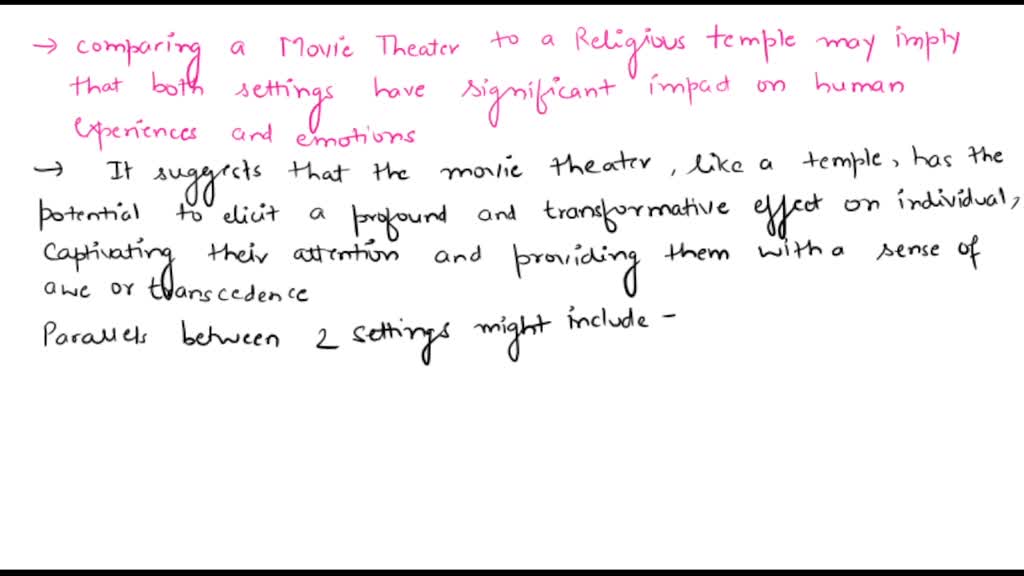 → comparing a Movie Theater to a Religious temple may imply
that both settings have significant impact on human
experiences and emotions
→ It suggests that the movie theater, like a temple, has the
potential to elicit a profound and transformative effect on individual,
captivating their attention and providing them with a sense of
awe or transcedence
Parallels between 2 settings might include -